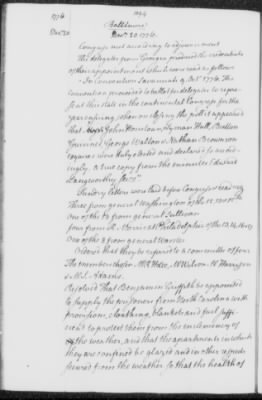 1776
Decr 20
Baltimore
Decr 20. 1776.
Congress met according to adjournment
The delegates from Georgia produced the credentials
of their appointment which were read as follows
In Convention Savannah 9 Oct. 1776. The
Convention proceeded to ballot for delegates to repre-
sent this state in the continental Congress for the
year ensuing, when on closing the poll it appeared
that John Houstoun, Lyman Hall, Button
Gwinnet, George Walton & Nathan Brownson
esquires were duly elected and declared
A true copy from the minutes Edward
Langworthy
Sundry letters were laid before Congress & read viz
Three from general Washington of the
One of the from general Sullivan
four from R. Morris at Philadelphia of the 13. 14. 16. 17
One of the 8 from general Warner
Ordered that they be referred to a committee of four
The members chosen Mr R H Lee, Mr Wilson, Mr Harrison
& Mr S. Adams.
Resolved That Benjamin Griffith be appointed
to supply the prisoners from North Carolina with
provisions, cloathing, blankets and fuel suffi-
cient to protect them from the inclemency of
the weather, and that the apartments in which
they are confined be glazed and in other respects
secured from the weather, so that the health of